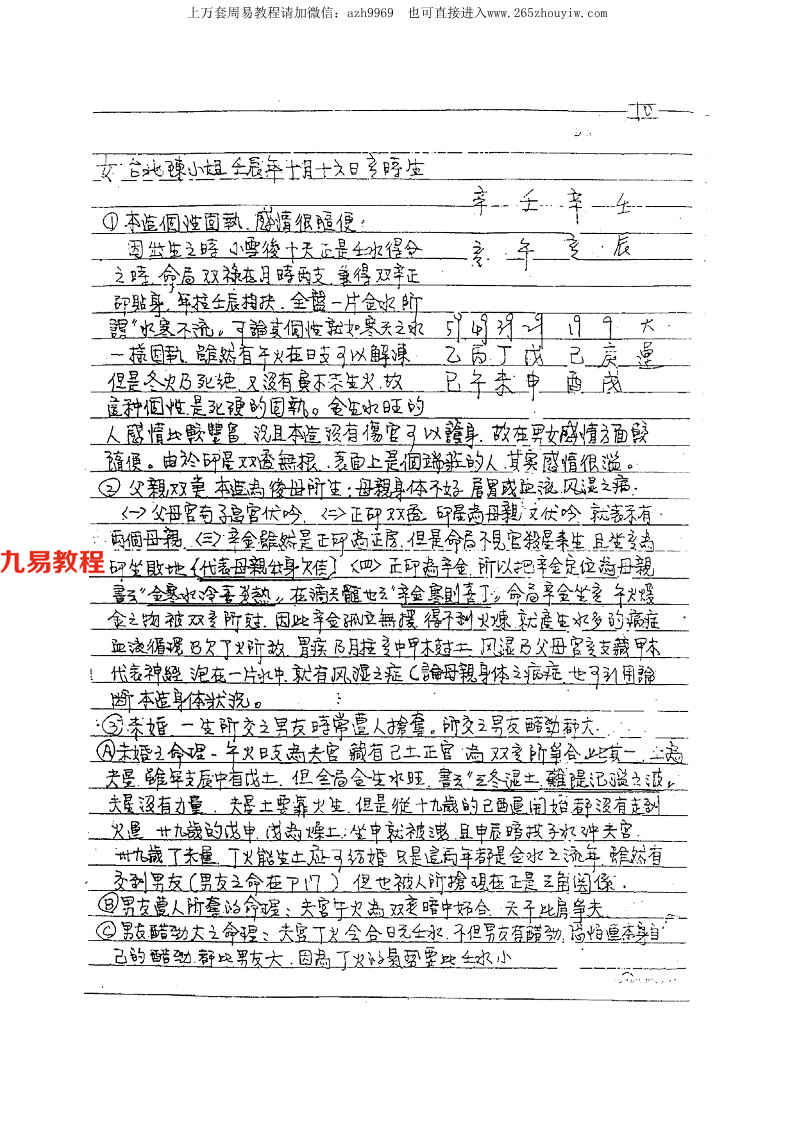 上万套周易教程请加微信：azh9969 也可直接进入www.265zhouyiw.com
十
女 台北陳小姐 壬辰年十月十六日亥時生
辛 壬 辛 壬
亥 午 亥 辰
①本造個性固執、感情很隨便：
因出生之時 小雪後十天正是壬水得令
之時，命局双祿在月時兩支，兼得双辛正
印貼身，年柱壬辰相扶，全盤一片金水所
謂"水寒不流。可論其個性就如寒天之水
一樣固執，雖然有午火在日支可以解凍
但是冬火乃死絕，又沒有寅木來生火，故
這种個性是死硬的固執。金生水旺的
59 49 39 29 19 9 大
乙 丙 丁 戊 己 庚 運
巳 午 未 申 酉 戌
人感情比較豐富，況且本造沒有傷官可以護身，故在男女感情方面較
隨便。由於印星双透無根，表面上是個端莊的人，其实感情很溢。
②父親双妻，本造為後母所生；母親身体不好，腸胃或血液，风湿之病。
〈一〉父母官与子息宮伏吟，〈二〉正印双透，印星為母親，又伏吟，就表示有
兩個母親，〈三〉辛金雖然是正印為正房，但是命局不見官殺星來生，且坐亥為
九易教程
印坐敗地（代表母親出身欠佳）〈四〉正印為辛金，所以把辛金定位為母親
書云"金寒水冷 ，在滴天髓也云"辛金寒則喜丁"，命局辛金坐亥，午火煖
金之物被双亥所尅，因此辛金孤立無援，得不到火煉，就產生水多的病症
血液循環乃欠丁火所故，胃疾乃月柱亥中甲木尅土，风湿乃父母宮亥支藏甲木
代表神經，泡在一片水中，就有风湿之症（論母親身体之病症，也可引用論
斷本造身体狀況。
③未婚，一生所交之男友時常遭人搶奪。所交之男友醋勁都大
Ⓐ未婚之命理－午火日支為夫宮，藏有己土正官，為双亥所爭合，此其一，土為
夫星，雖年支辰中有戊土，但全局金生水旺，書云"三冬湿土，難隄汜溢之波。
夫星沒有力量，夫星土要靠火生，但是從十九歲的己酉運開始都沒有走到
火運，廿九歲的戊申，戊為燥土，坐申就被洩，且申辰暗拱子水冲夫宮
卅九歲丁未運，丁火能生土，应可結婚，只是這兩年都是金水之流年，雖然有
交到男友（男友之命在P17）但也被人所搶，現在正是三角関係．
Ⓑ男友遭人所奪的命理：夫宮午火為双亥暗中好合，天干比肩爭夫
Ⓒ男友醋勁大之命理：夫宮丁火合合日元壬水，不但男友有醋勁，恐怕連本身自
己的醋勁都比男友大，因為丁火的氣弱要比壬水小